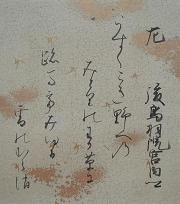 左　後鳥羽院宮内卿
うすくこき野への
みとりの若草に
跡まてみゆる
雪のむら消